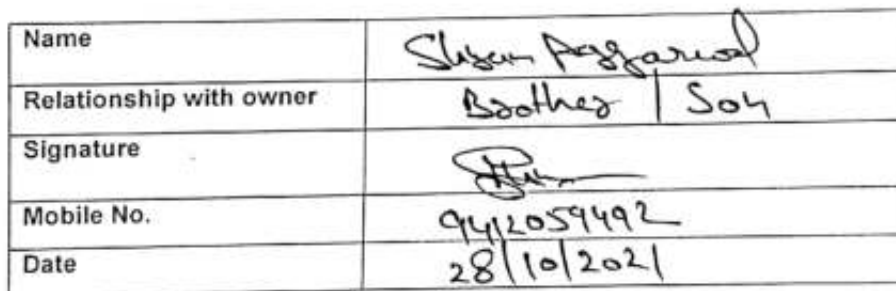 Name Shyam Aggarwal
Relationship with owner Brother / Son
Signature
Mobile No. 9412059492
Date 28/10/2021